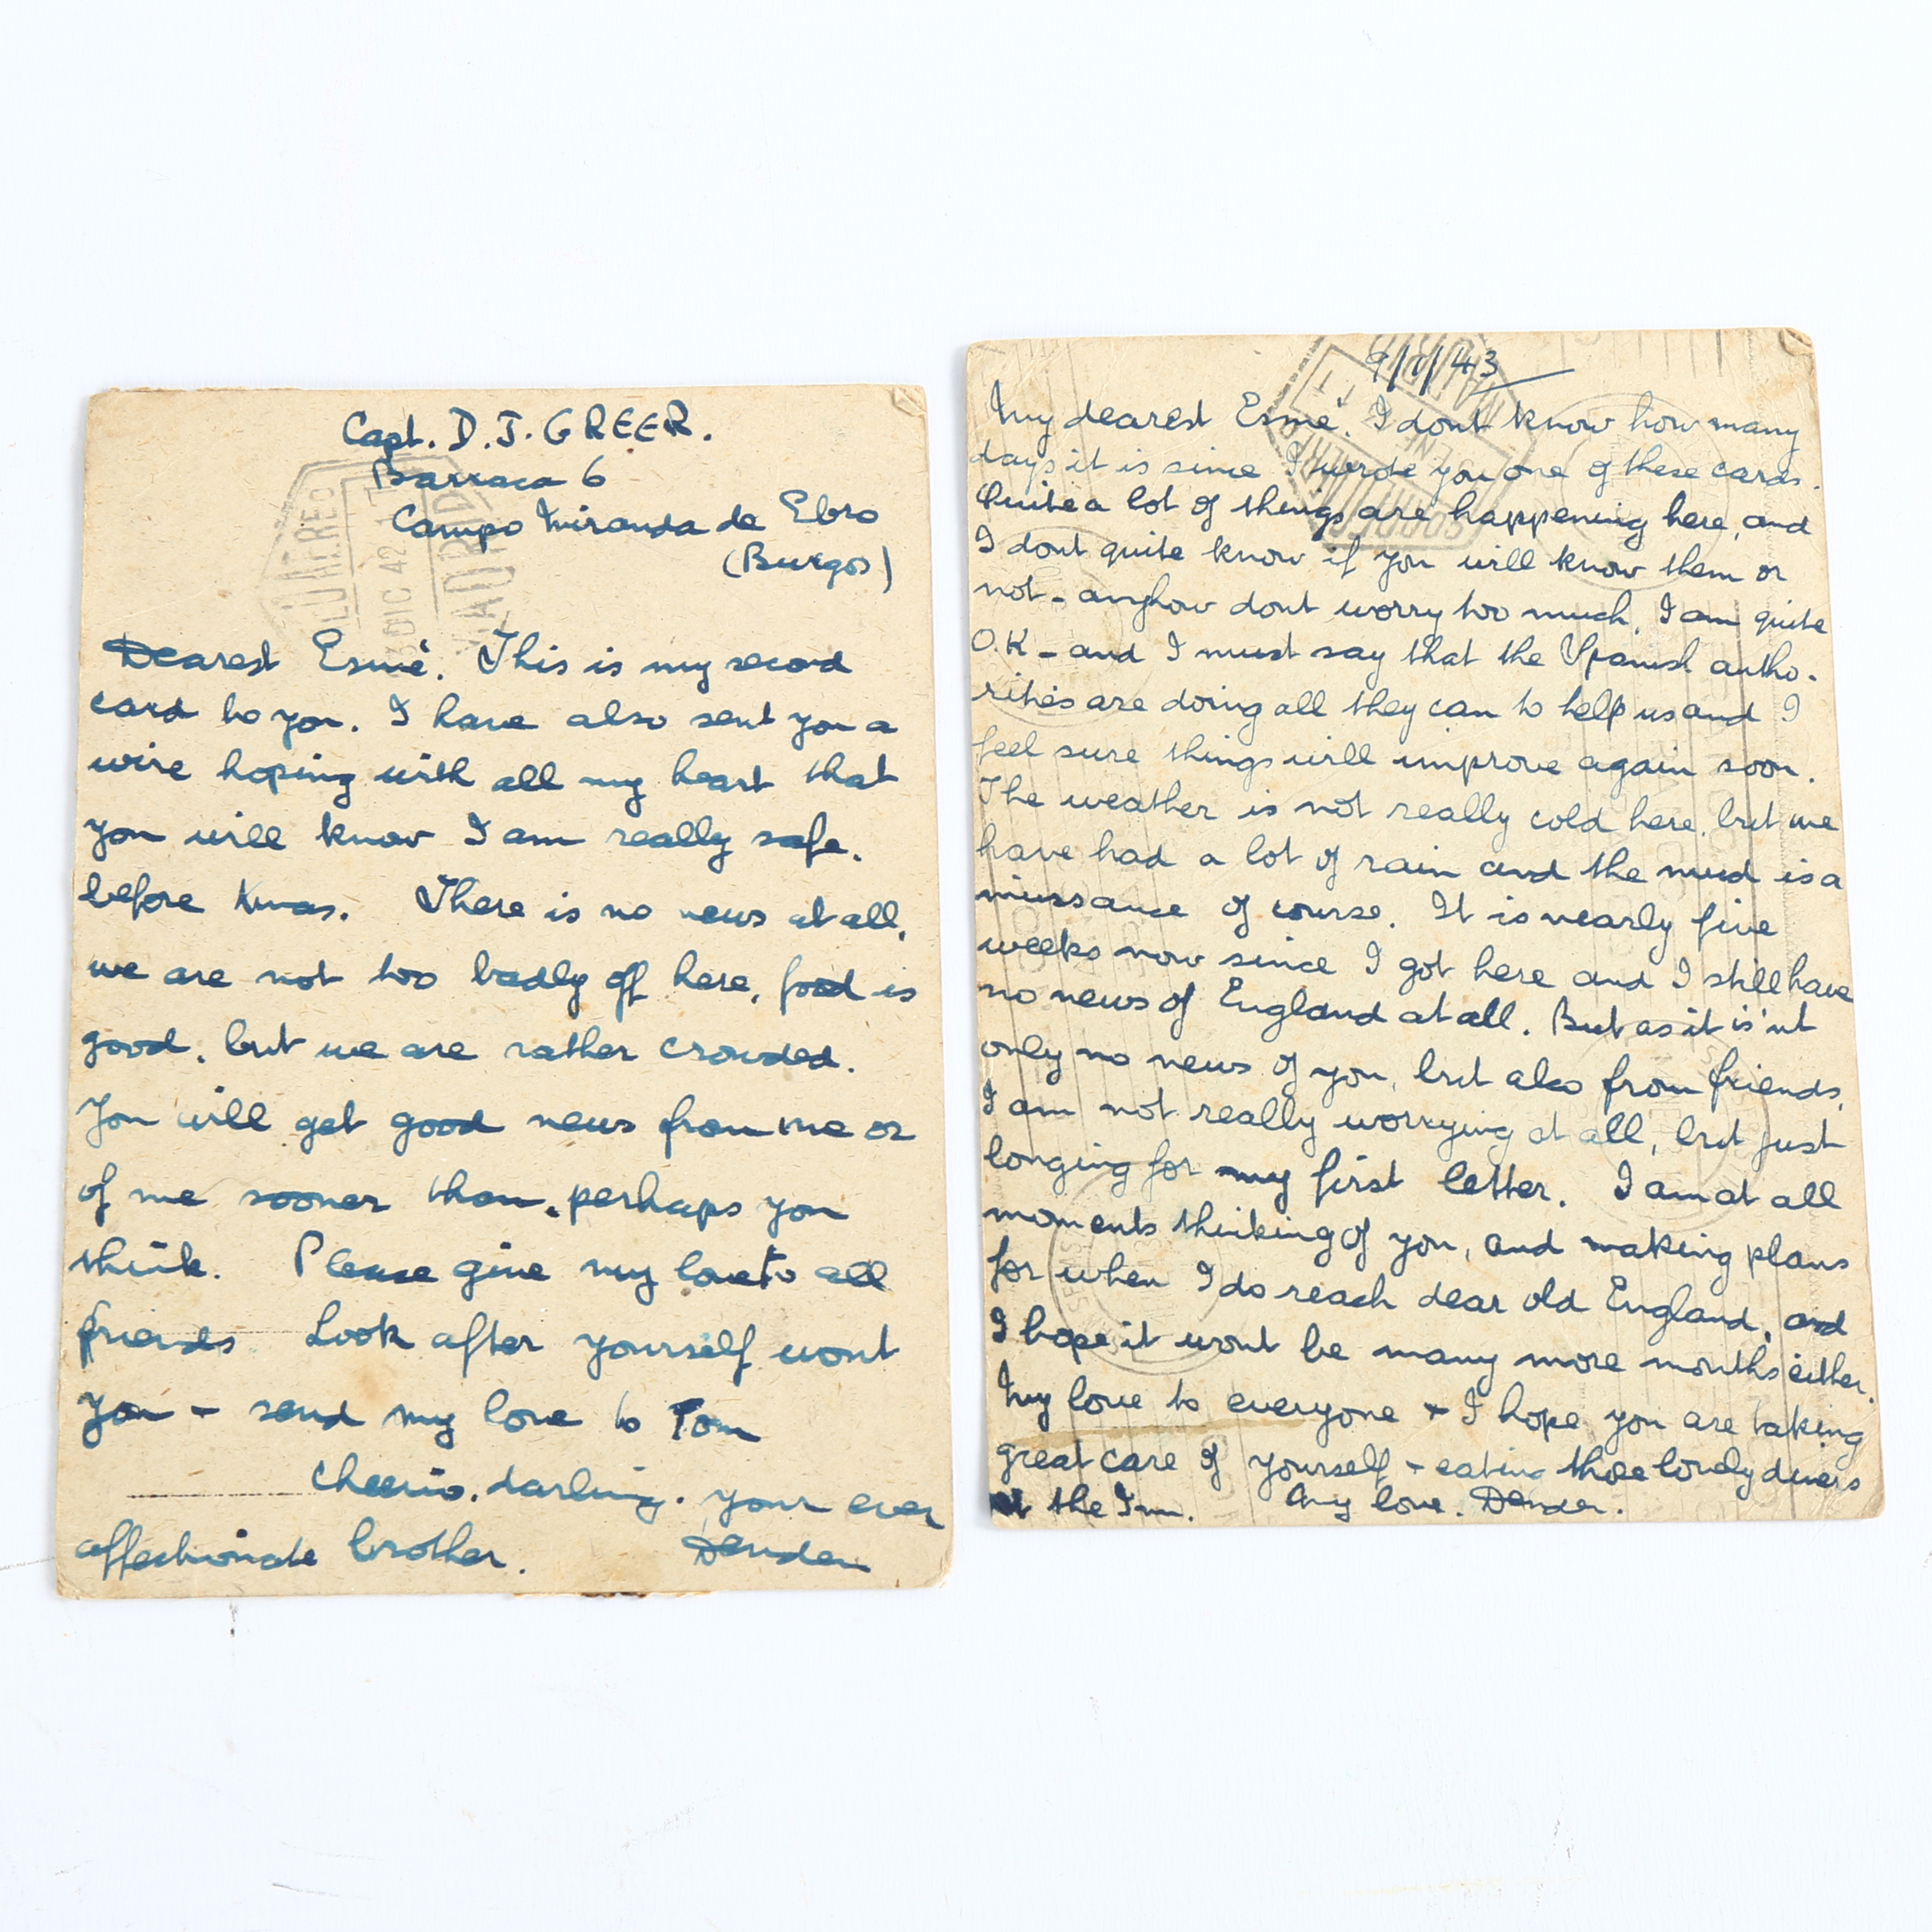 Capt. D. J. GREER.
Barraca 6
Campo Miranda de Ebro
(Burgos)
Dearest Esmé. This is my second
card to you. I have also sent you a
wire hoping with all my heart that
you will know I am really safe.
before Xmas. There is no news at all.
we are not too badly off here, food is
good, but we are rather crowded.
You will get good news from me or
of me sooner than perhaps you
think. Please give my love to all
friends Look after yourself wont
you - send my love to Tom
Cheerio. darling. your ever
affectionate brother. Denden
DIC 42
MADRID
9/1/43
My dearest Esmé. I dont know how many
days it is since I wrote you one of these cards.
Quite a lot of things are happening here, and
I dont quite know if you will know them or
not - anyhow dont worry too much, I am quite
O.K - and I must say that the Spanish autho-
rities are doing all they can to help us and I
feel sure things will improve again soon.
The weather is not really cold here, but we
have had a lot of rain and the mud is a
miussance of course. It is nearly five
weeks now since I got here and I still have
no news of England at all. But as it is'nt
only no news of you, but also from friends,
I am not really worrying at all, but just
longing for my first letter. I am at all
moments thinking of you, and making plans
for when I do reach dear old England, and
I hope it wont be many more months either.
My love to everyone + I hope you are taking
great care of yourself - eating those lovely diners
at the Inn. My love. Denden.